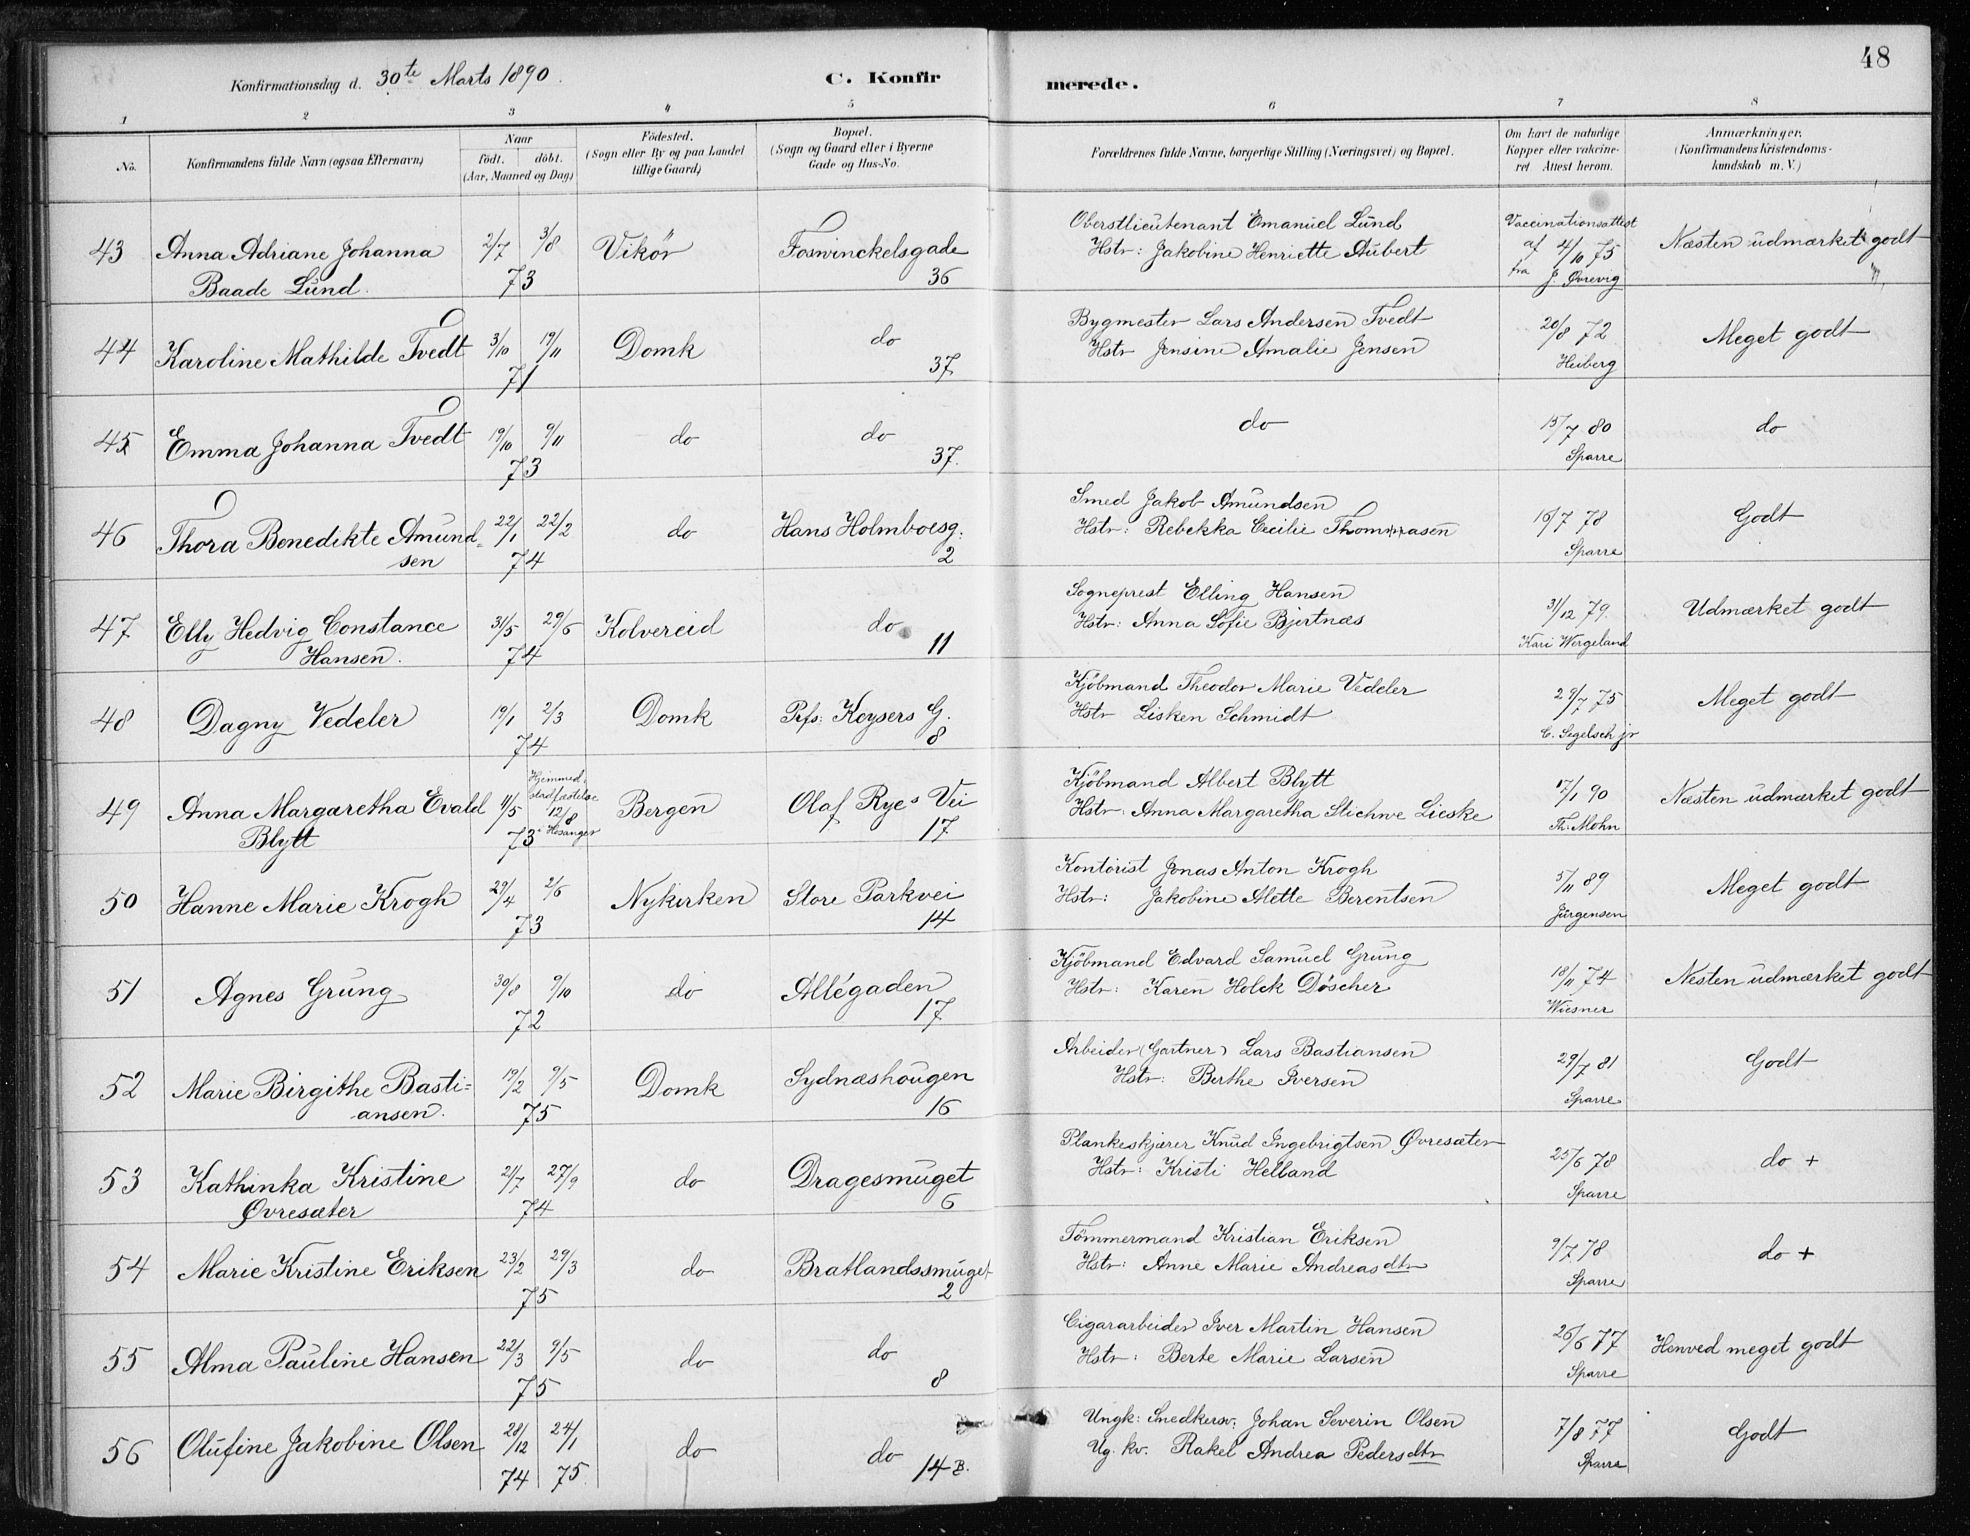 48
Konfirmationsdag d. 30te Marts 1890.
C. Konfirmerede.
1 2 3 4 5 6 7 8
No. Konfirmandens fulde Navn (ogsaa Efternavn) Naar födt. döbt. (Aar, Maaned og Dag) Födested. (Sogn eller By og paa Landet tillige Gaard) Bopæl. (Sogn og Gaard eller i Byerne Gade og Hus-No. Forældrenes fulde Navne, borgerlige Stilling (Næringsvei) og Bopæl. Om havt de naturlige Kopper eller vakcineret Attest herom. Anmærkninger. (Konfirmandens Kristendomskundskab m. V.)
43 Anna Adriane Johanna 2/7 3/8 Vikør Foswinckelsgade Oberstlieutenant Emanuel Lund Vaccinationsattest Næsten udmærket godt
Baade Lund. 73 36 Hstr: Jakobine Henriette Aubert af 4/10 75 fra J. Øvrevig
44 Karoline Mathilde Tvedt 3/10 19/11 Domk do Bygmester Lars Andersen Tvedt 20/8 72 Meget godt
71 37 Hstr Jensine Amalie Jensen Heiberg
45 Emma Johanna Tvedt 19/10 9/11 do do do 15/7 80 do
73 37. Sparre
46 Thora Benedikte Amund- 22/1 22/2 do Hans Holmboesg. Smed Jakob Amundsen 16/7 78 Godt
sen 74 2 Hstr: Rebekka Cecilie Thommasen Sparre
47 Elly Hedvig Constance 31/5 29/6 Kolvereid do Sogneprest Elling Hansen 31/12 79. Udmærket godt
Hansen. 74 11 Hstr: Anna Sofie Bjertnæs Kari Wergeland
48 Dagny Vedeler 19/1 2/3 Domk Prfs: Keysers G. Kjöbmand Theodor Marie Vedeler 29/7 75 Meget godt
74 8 Hstr Lisken Schmidt C. Segelsch jr
49 Anna Margaretha Evald 1/5 Hjemmed. stadfæstelse 12/8 Bergen Olaf Ryes Vei Kjöbmand Albert Blytt 17/1 90 Næsten udmærket godt
Blytt 73 17 Hstr: Anna Margaretha Stichwe Lieske Th: Mohn
50 Hanne Marie Krogh 29/4 2/6 Nykirken Store Parkvei Kontorist Jonas Anton Krogh 5/11 89 Meget godt
73 14 Hstr: Jakobine Alette Berentsen Jürgensen
51 Agnes Grung 30/8 9/10 do Allégaden Kjöbmand Edvard Samuel Grung 18/11 74 Nesten udmærket godt
72 17 Hstr: Karen Holck Döscher Wiesner
52 Marie Birgithe Basti- 19/2 9/5 Domk Sydnæshougen Arbeider (Gartner) Lars Bastiansen 29/7 81 Godt
ansen. 75 16 Hstr: Berthe Iversen Sparre
53 Kathinka Kristine 2/7 27/9 do Dragesmuget Plankeskjærer Knud Ingebrigtsen Øvresæter 25/6 78 do +
Øvresæter 74 6 Hstr: Kristi Helland Sparre
54 Marie Kristine Eriksen 23/2 29/3 do Bratlandssmuget Tömmermand Kristian Eriksen 9/7 78 do +
75 2 Hstr: Anne Marie Andreasdtr Sparre
55 Alma Pauline Hansen 22/3 9/5 do do Cigararbeider Iver Martin Hansen 26/6 77 Henved meget godt
75 8 Hstr: Berte Marie Larsen Sparre
56 Olufine Jakobine Olsen 28/12 24/1 do do Ungk: Snedkersv. Johan Severin Olsen 7/8 77 Godt
74 75 14 B. Ug. kv. Rakel Andrea Pedersdtr Sparre